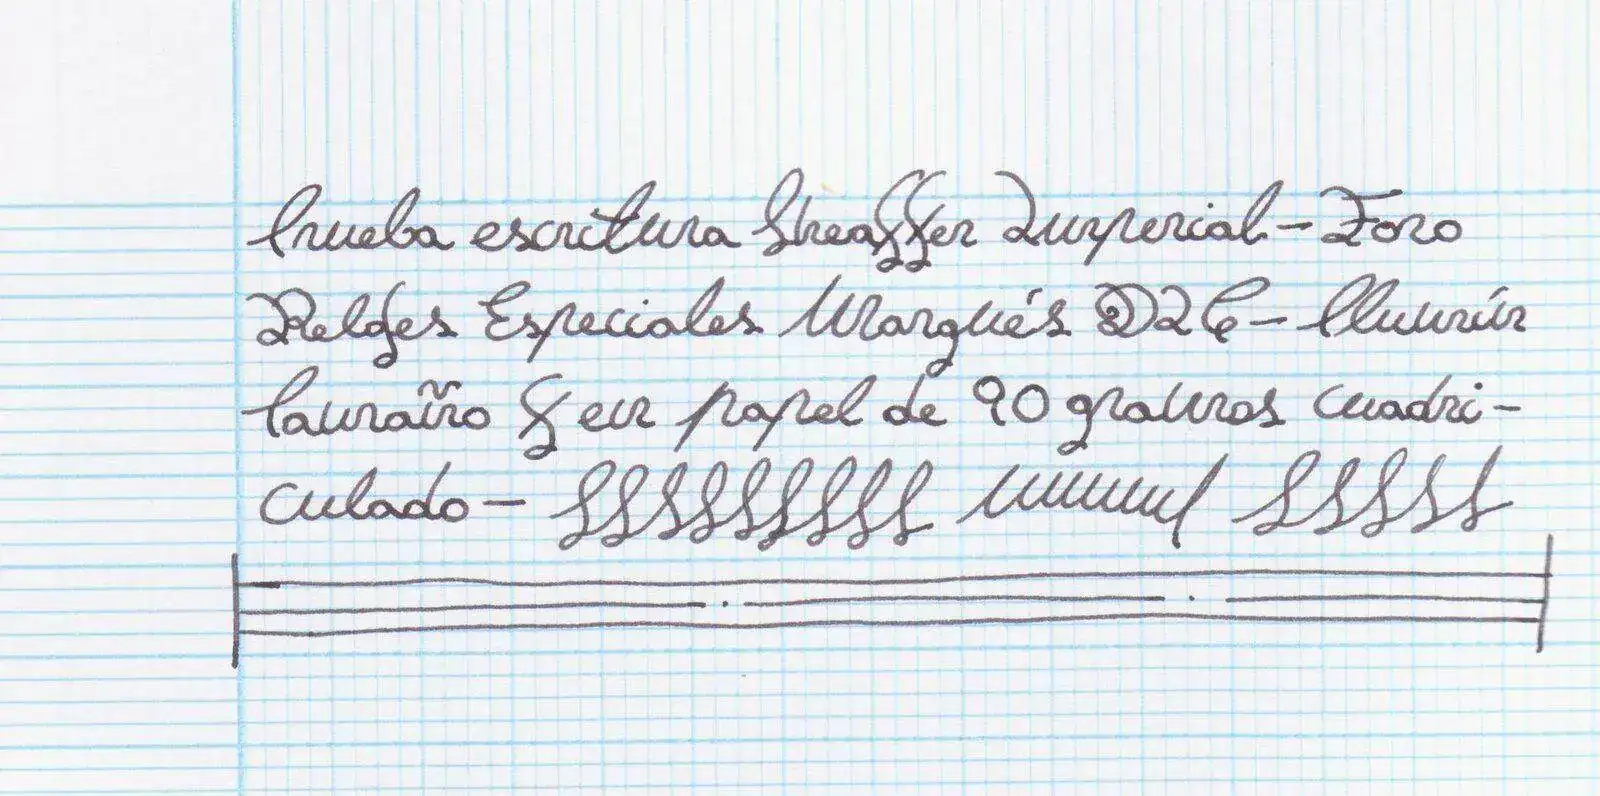 Prueba escritura Sheaffer Imperial - Foro
Relojes Especiales Marqués D26 - Plumín
tamaño F en papel de 90 gramos cuadri-
culado -